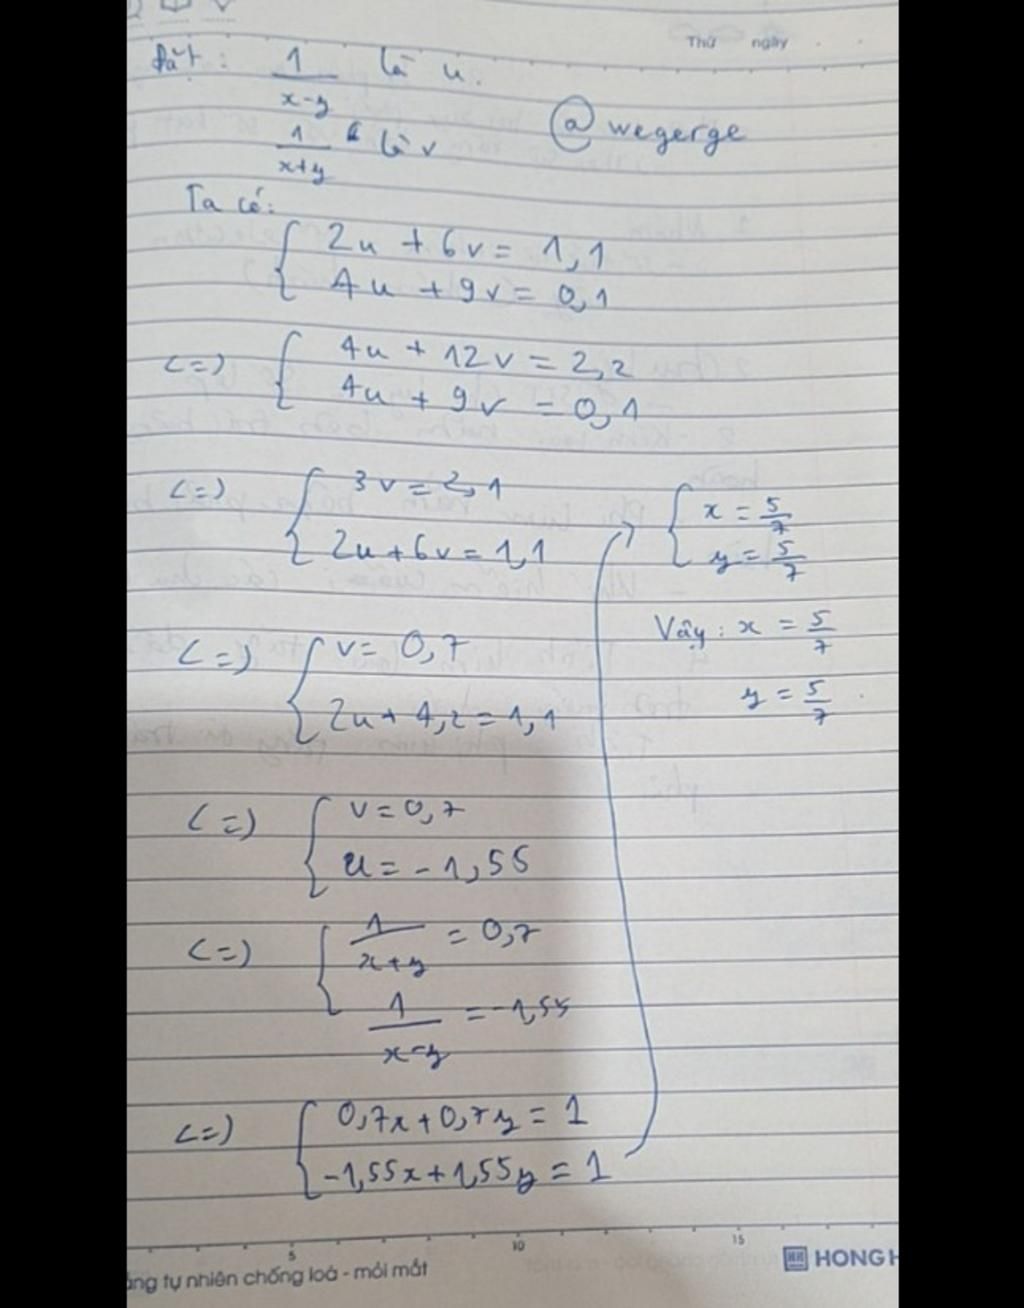 Thứ ngày
Đặt: 1/(x-y) là u.
1/(x+y) là v
@wegerge
Ta có:
{ 2u + 6v = 1,1
4u + 9v = 0,1
<=> { 4u + 12v = 2,2
4u + 9v = 0,1
<=> { 3v = 2,1
2u + 6v = 1,1
<=> { v = 0,7
2u + 4,2 = 1,1
<=> { v = 0,7
u = -1,55
<=> { 1/(x+y) = 0,7
1/(x-y) = -1,55
<=> { 0,7x + 0,7y = 1
-1,55x + 1,55y = 1
→ { x = 5/7
y = 5/7
Vậy: x = 5/7
y = 5/7
5 10 15
tự nhiên chống loá - mỏi mắt
HONG H